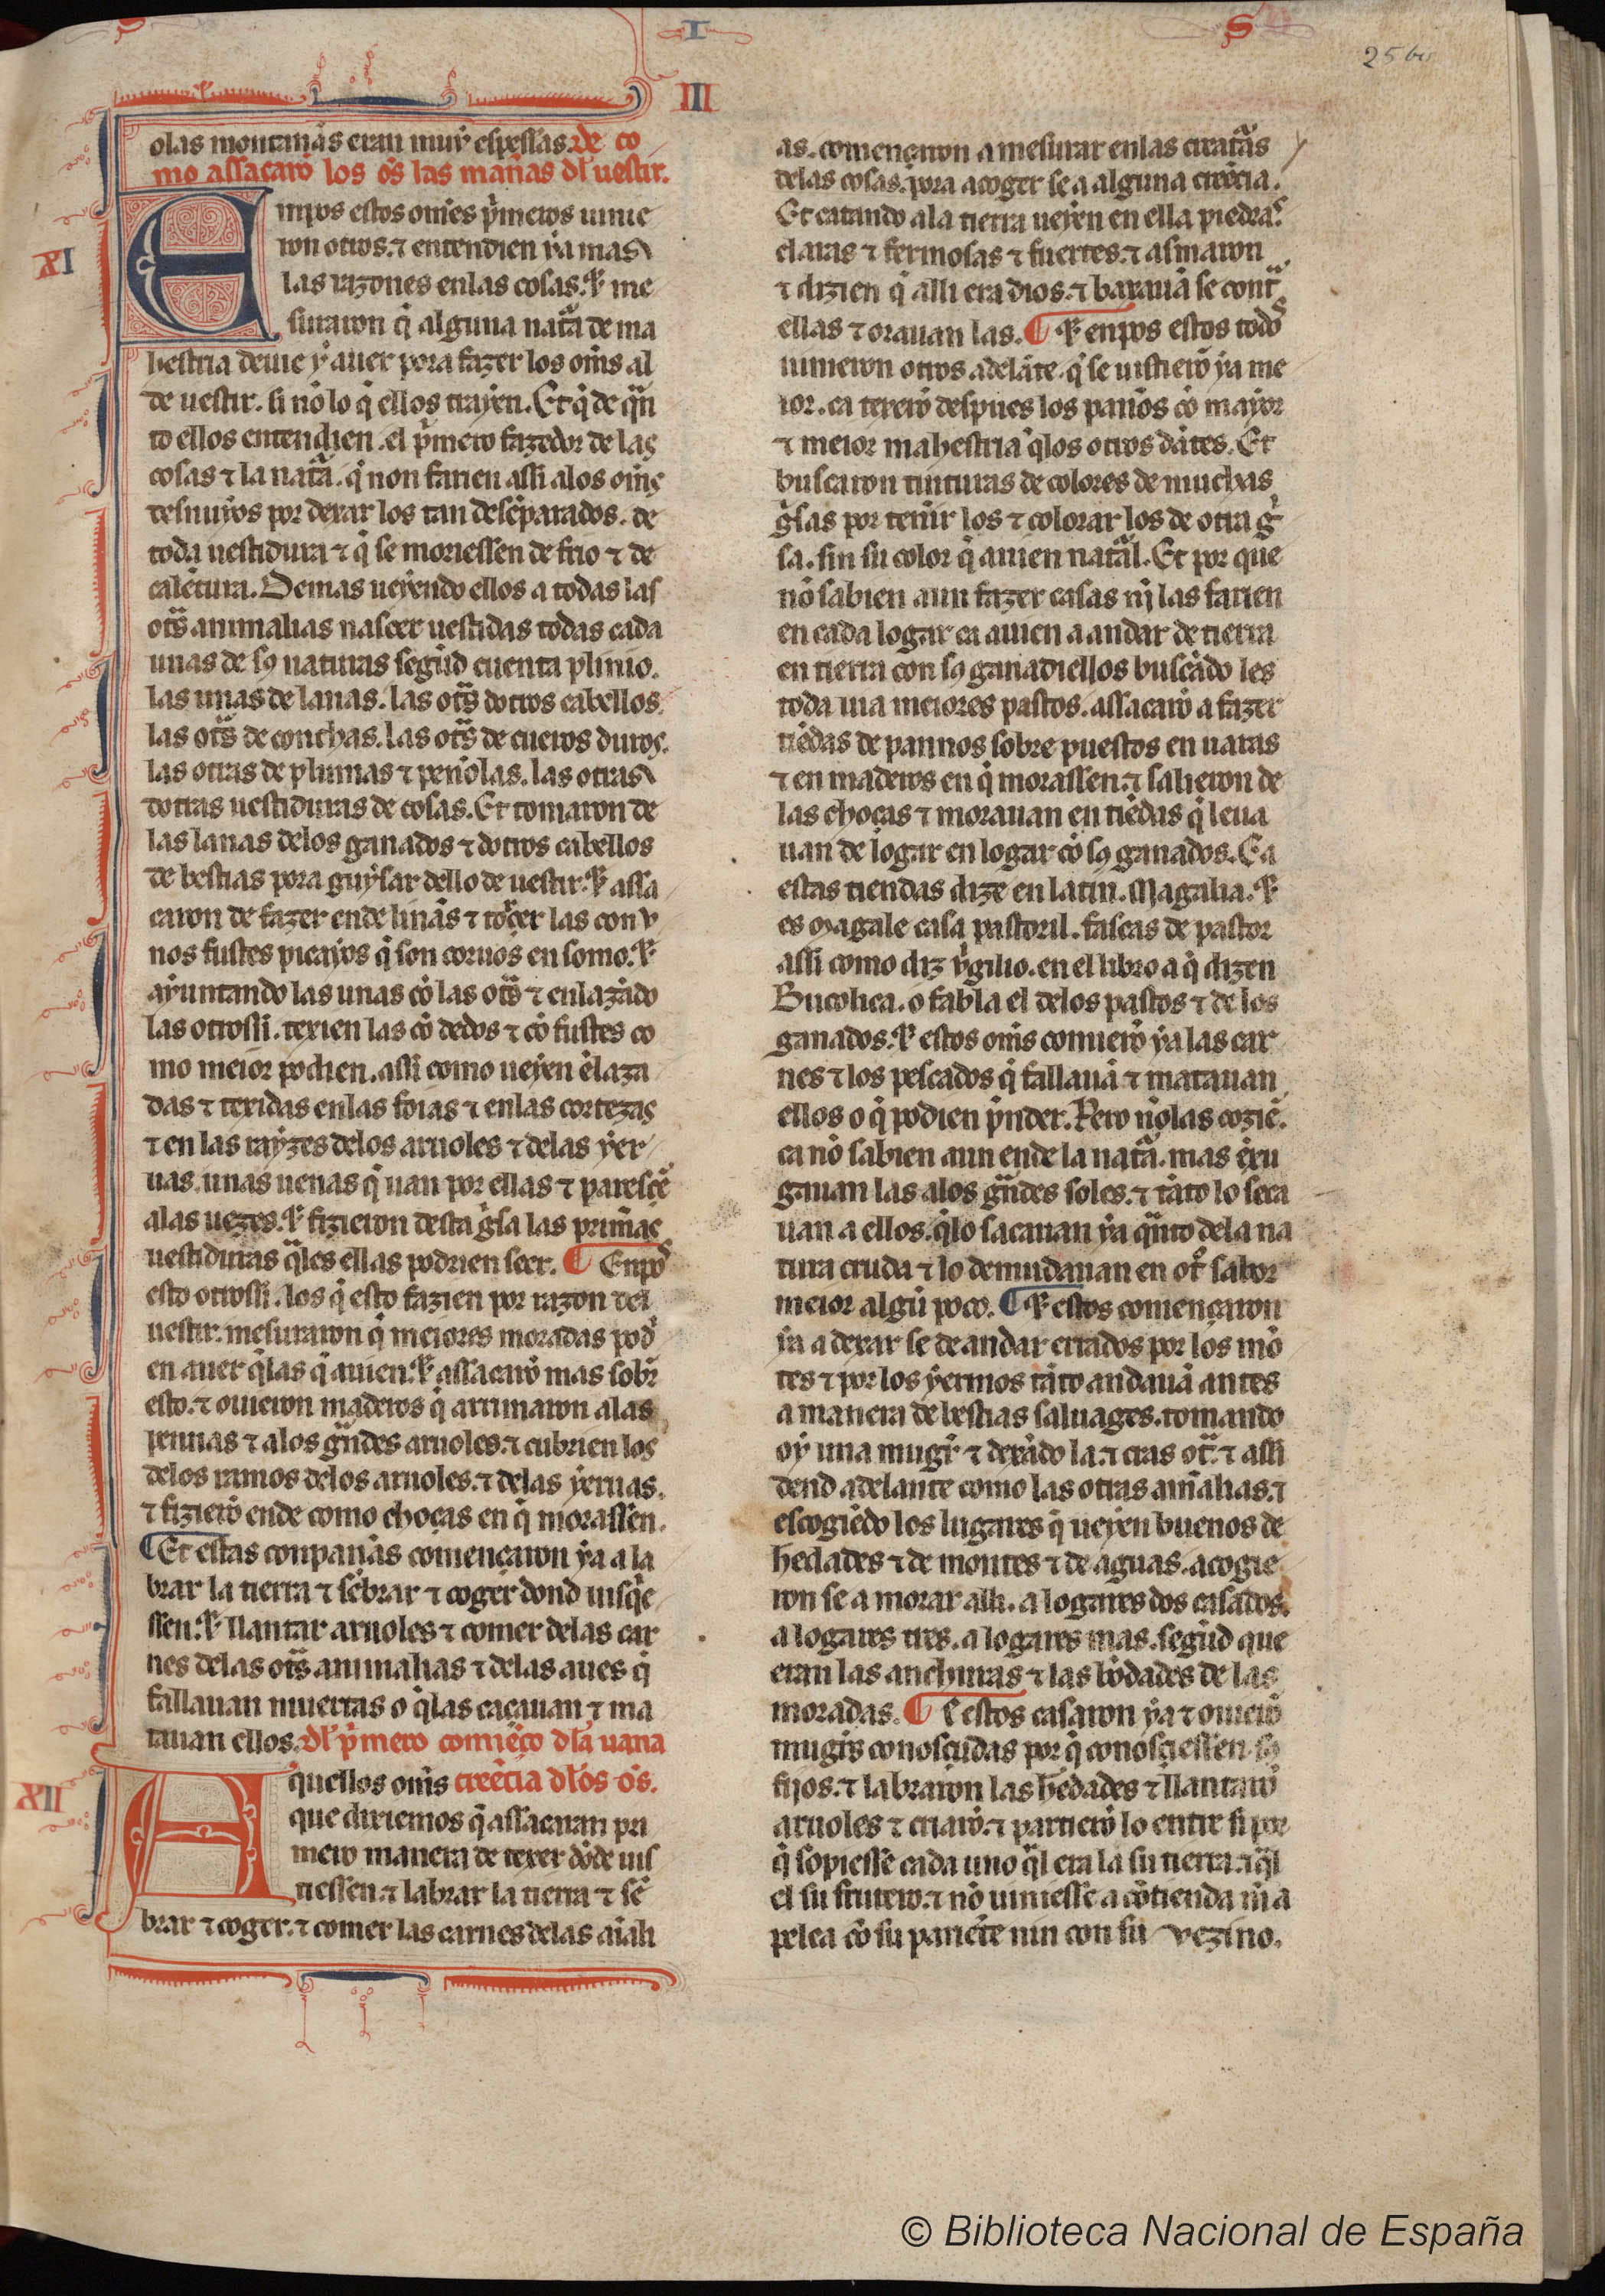 I
S
25 bis
III
olas montannas eran muy espessas. de co
mo assacarõ los õs las mañas dl uestir.
XI
Enpos estos omes p̃meros uinie
ron otros. ⁊ entendien ya mas
las razones enlas cosas. ⁊ me
suraron q̃ alguna nat̃a de ma
hestria deuie y auer pora fazer los om̃s al
de uestir. si nõ lo q̃ ellos trayen. Et q̃ de q̃n
to ellos entendien. el p̃mero fazedor de las
cosas ⁊ la nat̃a. q̃ non farien assi alos om̃s
desnuyos por dexar los tan desẽparados. de
toda uestidura ⁊ q̃ se moriessen de frio ⁊ de
calẽtura. Demas ueyendo ellos a todas las
ot̃s animalias nascer uestidas todas cada
unas de sꝰ naturas segũd cuenta plinio.
las unas de lanas. las ot̃s dotros cabellos.
las ot̃s de conchas. las ot̃s de cueros duros.
las otras de plumas ⁊ peñolas. las otras
dotras uestiduras de cosas. Et tomaron de
las lanas delos ganados ⁊ dotros cabellos
de bestias pora guysar dello de uestir. ⁊ assa
caron de fazer ende linãs ⁊ torcer las con u
nos fustes picayos q̃ son coruos en somo. ⁊
ayuntando las unas cõ las ot̃s ⁊ enlazãdo
las otrossi. texien las cõ dedos ⁊ cõ fustes co
mo meior podien. assi como ueyen ẽlaza
das ⁊ texidas enlas foias ⁊ enlas cortezas
⁊ en las rayzes delos aruoles ⁊ delas yer
uas. unas uenas q̃ uan por ellas ⁊ parescẽ
alas uezes. ⁊ fizieron desta g̃sa las prim̃as
uestiduras q̃les ellas podrien seer. ¶ Enpoˢ
esto otrossi. los q̃ esto fazien por razon del
uestir. mesuraron q̃ meiores moradas podⁱ
en auer q̃las q̃ auien. ⁊ assacarõ mas sobr̃
esto. ⁊ ouieron maderos q̃ arrimaron alas
pennas ⁊ alos g̃ndes aruoles. ⁊ cubrien los
delos ramos delos aruoles. ⁊ delas yeruas.
⁊ fizierõ ende como choças en q̃ morassen.
¶ Et estas conpañas començaron ya a la
brar la tierra ⁊ sẽbrar ⁊ coger dond uisq̃e
ssen. ⁊ llantar aruoles ⁊ comer delas car
nes delas ot̃s animalias ⁊ delas aues q̃
fallauan muertas o q̃las caçauan ⁊ ma
tauan ellos. dl p̃mero comiẽço dla uana
XII
Aquellos om̃s creẽcia dlos õs.
que dixiemos q̃ assacaran pri
mero manera de texer dõde uis
tiessen. ⁊ labrar la tierra ⁊ sẽ
brar ⁊ coger. ⁊ comer las carnes delas aĩali
as. començaron a mesurar enlas creat̃as
delas cosas. pora acoger se a alguna creẽcia.
Et catando ala tierra ueyen en ella piedras
claras ⁊ fermosas ⁊ fuertes. ⁊ asmaron
⁊ dizien q̃ alli era dios. ⁊ baxauã se cont̃
ellas ⁊ orauan las. ¶ ⁊ enpos estos todoˢ
uinieron otros adelãte. q̃ se uistierõ ya me
ior. ca texierõ despues los paños cõ mayor
⁊ meior mahestria q̃los otros dãtes. Et
buscaron tinturas de colores de muchas
g̃sas por tenir los ⁊ colorar los de otra g̃
sa. sin su color q̃ auien nat̃al. Et por que
nõ sabien aun fazer casas nj̃ las farien
en cada logar ca auien a andar de tierra
en tierra con sꝰ ganadiellos buscãdo les
toda uia meiores pastos. assacarõ a fazer
tiẽdas de pannos sobre puestos en uaras
⁊ en maderos en q̃ morassen. ⁊ salieron de
las choças ⁊ morauan en tiẽdas q̃ leua
uan de logar en logar cõ sꝰ ganados. Ca
estas tiendas dize en latin. Magalia. ⁊
es magale casa pastoril. fascas de pastor
assi como diz ṽgilio. en el libro a q̃ dizen
Bucolica. o fabla el delos pastos ⁊ de los
ganados. ⁊ estos om̃s comierõ ya las car
nes ⁊ los pescados q̃ fallauã ⁊ matauan
ellos o q̃ podien p̃nder. Pero nõlas coziẽ.
ca nõ sabien aun ende la nat̃a. mas ẽxu
gauan las alos g̃ndes soles. ⁊ tãto lo seca
uan a ellos. q̃lo sacauan ya q̃nto dela na
tura cruda ⁊ lo demudauan en ot̃ sabor
meior algũ poco. ¶ ⁊ estos començaron
ya a dexar se de andar errados por los mõ
tes ⁊ por los yermos tãto andauã antes
a manera de bestias saluages. tomando
oy una mugr̃ ⁊ dexãdo la. ⁊ cras ot̃. ⁊ assi
dend adelante como las otras aĩalias. ⁊
escogiẽdo los lugares q̃ ueyen buenos de
hedades ⁊ de montes ⁊ de aguas. acogie
ron se a morar alli. a logares dos casados.
a logares tres. a logares mas. segũd que
eran las anchuras ⁊ las bõdades de las
moradas. ¶ ⁊ estos casaron ya ⁊ ouierõ
mugr̃s conosçudas por q̃ conosciessen sꝰ
fijos. ⁊ labraron las hedades ⁊ llantarõ
aruoles ⁊ criarõ. ⁊ partierõ lo entre si por
q̃ sopiesse cada uno q̃l era la su tierra. ⁊ q̃l
el su frutero. ⁊ nõ uiniesse a cõtienda nĩ a
pelea cõ su pariẽte nin con su vezino.
© Biblioteca Nacional de España